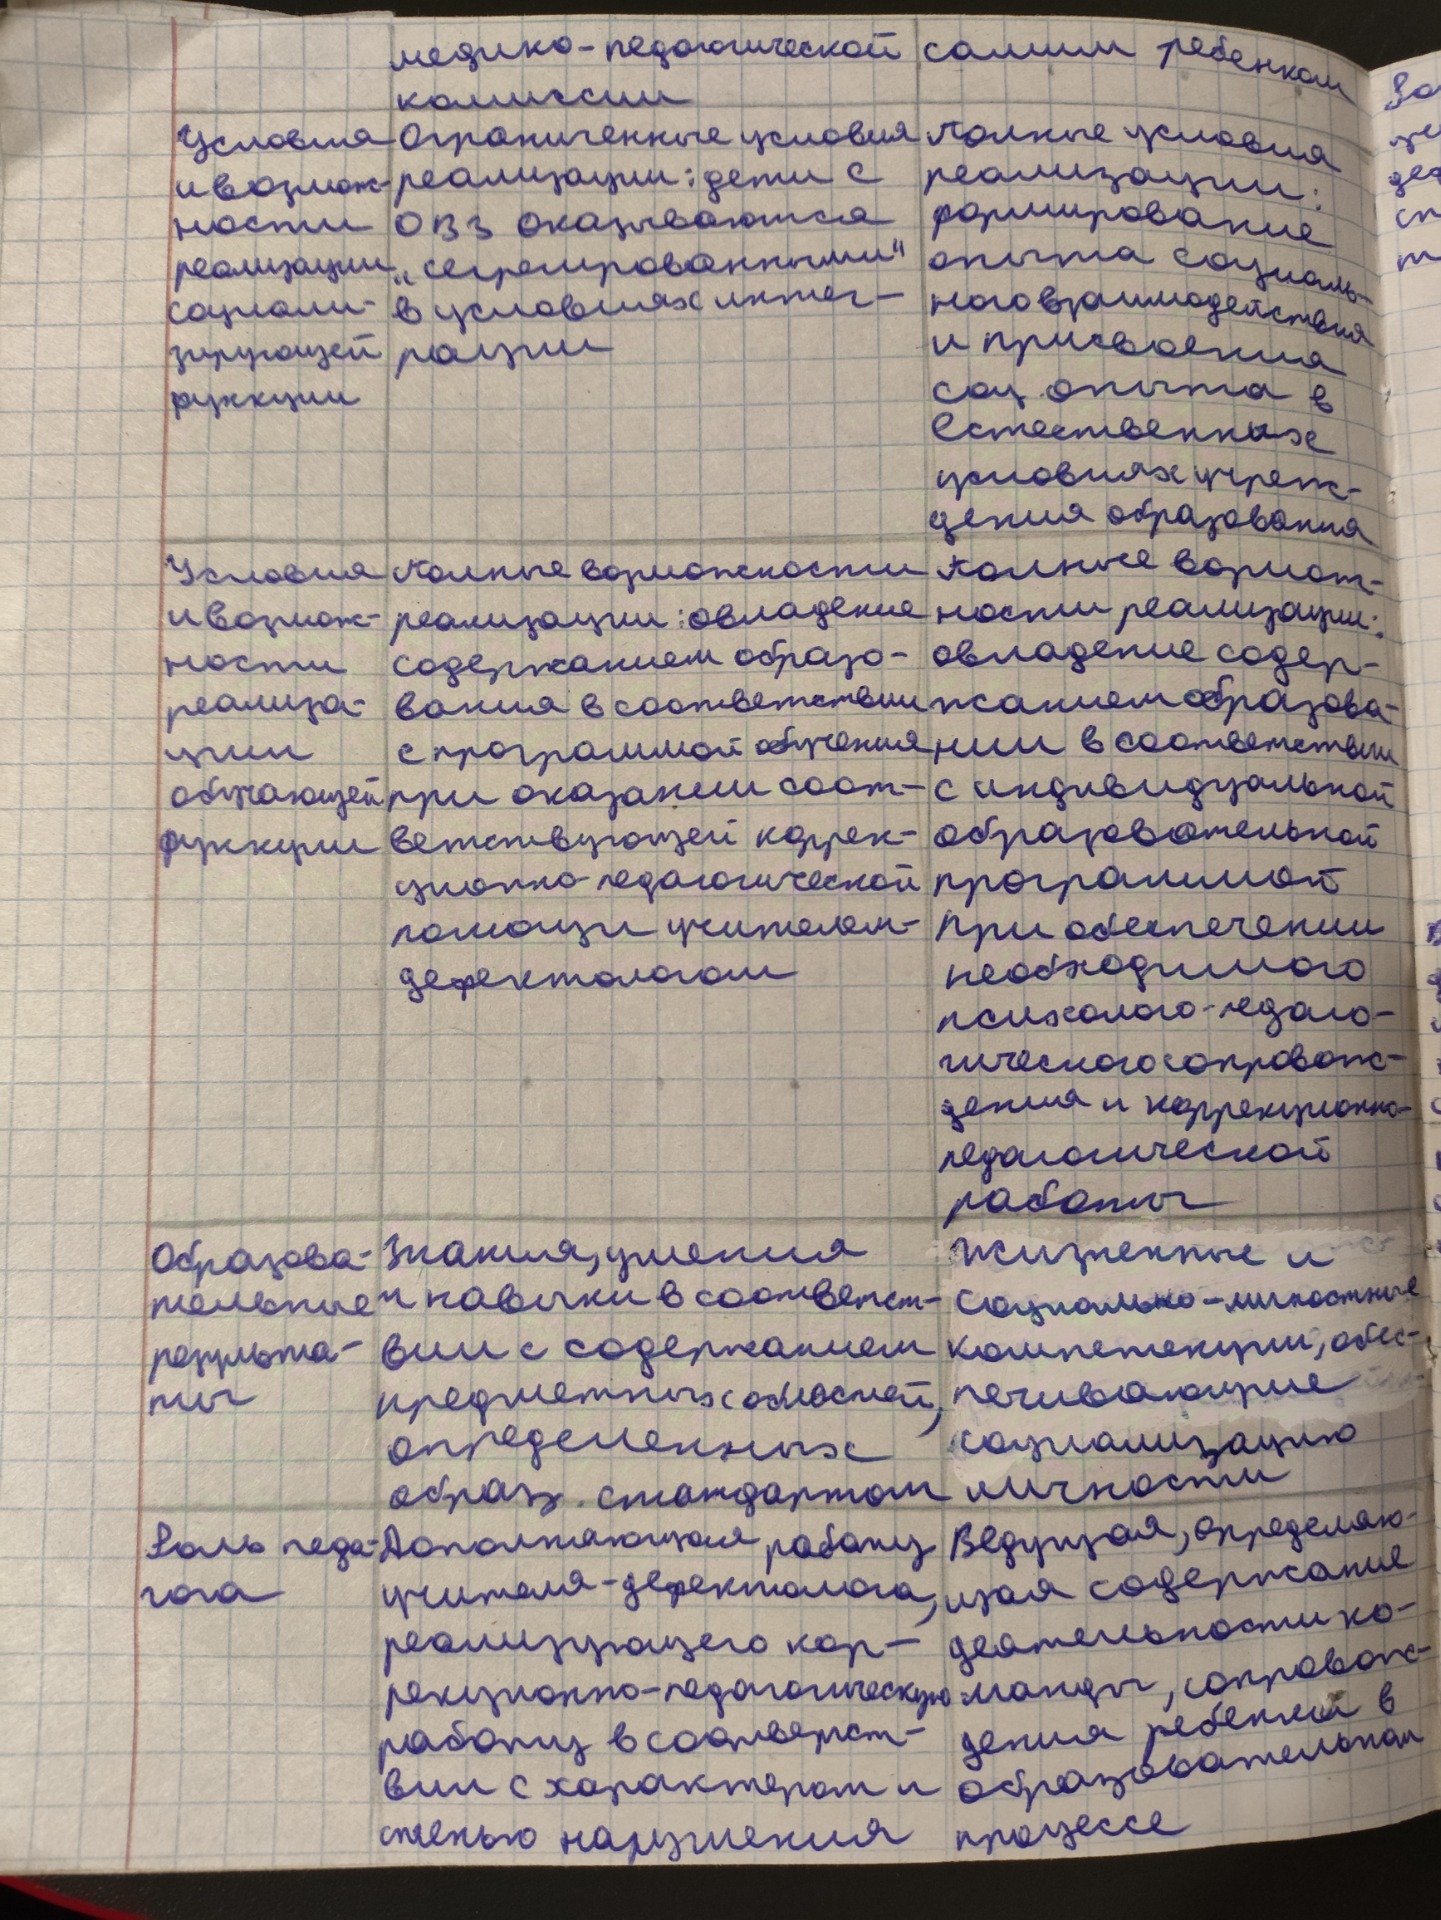 медико-педагогической
комиссии
самим ребенком
Условия
и возмож-
ности
реализации
социали-
зирующей
функции
Ограниченные условия
реализации: дети с
ОВЗ оказываются
„сегрегированными"
в условиях интег-
рации
Полные условия
реализации:
формирование
опыта социаль-
ного взаимодействия
и присвоения
соц. опыта в
естественных
условиях учреж-
дения образования
Условия
и возмож-
ности
реализа-
ции
обучающей
функции
Полные возможности
реализации: овладение
содержанием образо-
вания в соответствии
с программой обучения
при оказании соот-
ветствующей коррек-
ционно-педагогической
помощи учителем-
дефектологом
Полные возмож-
ности реализации:
овладение содер-
жанием образова-
нии в соответствии
с индивидуальной
образовательной
программой
при обеспечении
необходимого
психолого-педаго-
гического сопровож-
дения и коррекционно-
педагогической
работы
Образова-
тельные
результа-
ты
Знания, умения
и навыки в соответст-
вии с содержанием
предметных областей,
определенных
образ. стандартом
Жизненные и
социально-личностные
компетенции, обес-
печивающие
социализацию
личности
Роль педа-
гога
Дополняющая работу
учителя-дефектолога,
реализующего кор-
рекционно-педагогическую
работу в соответст-
вии с характером и
степенью нарушения
Ведущая, определяю-
щая содержание
деятельности ко-
манды, сопровож-
дения ребенка в
образовательном
процессе